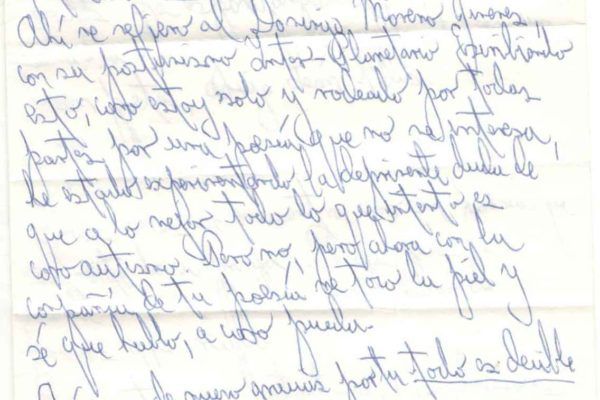 Ahí se refiero al Domingo Moreno Jimenes,
con su postumismo inter-Planetario Escribiendo
esto, como estoy solo y rodeado por todas
partes por una poesía que no me interesa,
he estado experimentando la deprimente duda de
que a lo mejor todo lo que intento es
como autismo. Pero no, pero ahora con la
compañía de tu poesía me toco la piel y
sé que hablo, a como pueda.
de nuevo gracias por tu todo es decible